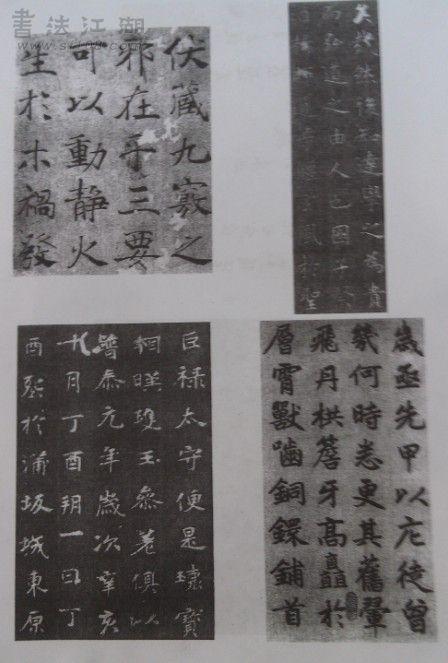 書法江湖
伏藏九竅之
邪在乎三要
可以動靜火
生於木禍發
然後知達學之為貴
而弘道之由人也
巨祿太守便是寶
相暎玉參差俱以
普泰元年歲次辛亥
十月丁酉朔一日丁
酉於蒲坂城東原
歲丞先甲以庀徒曾
幾何時悉更其舊翬
飛丹栱簷牙高矗於
層霄獸嚙銅鐶鋪首